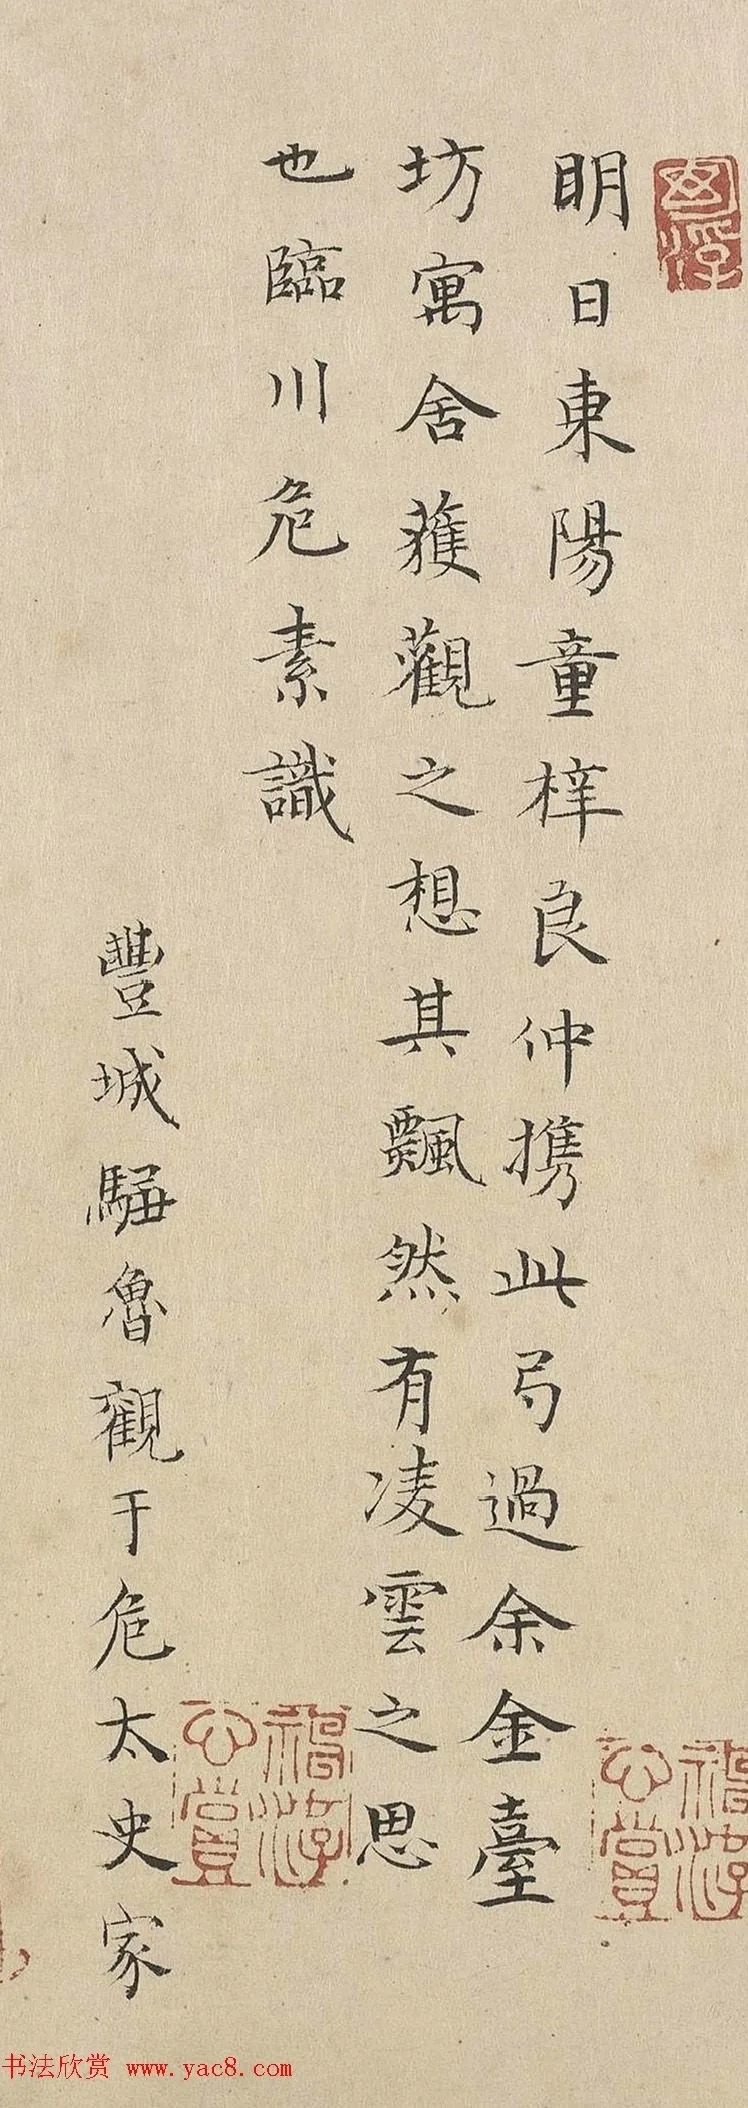 明日東陽童梓良仲携此弓過余金臺
坊寓舍獲觀之想其飄然有凌雲之思
也臨川危素識
豐城騶魯觀于危太史家
书法欣赏 www.yac8.com